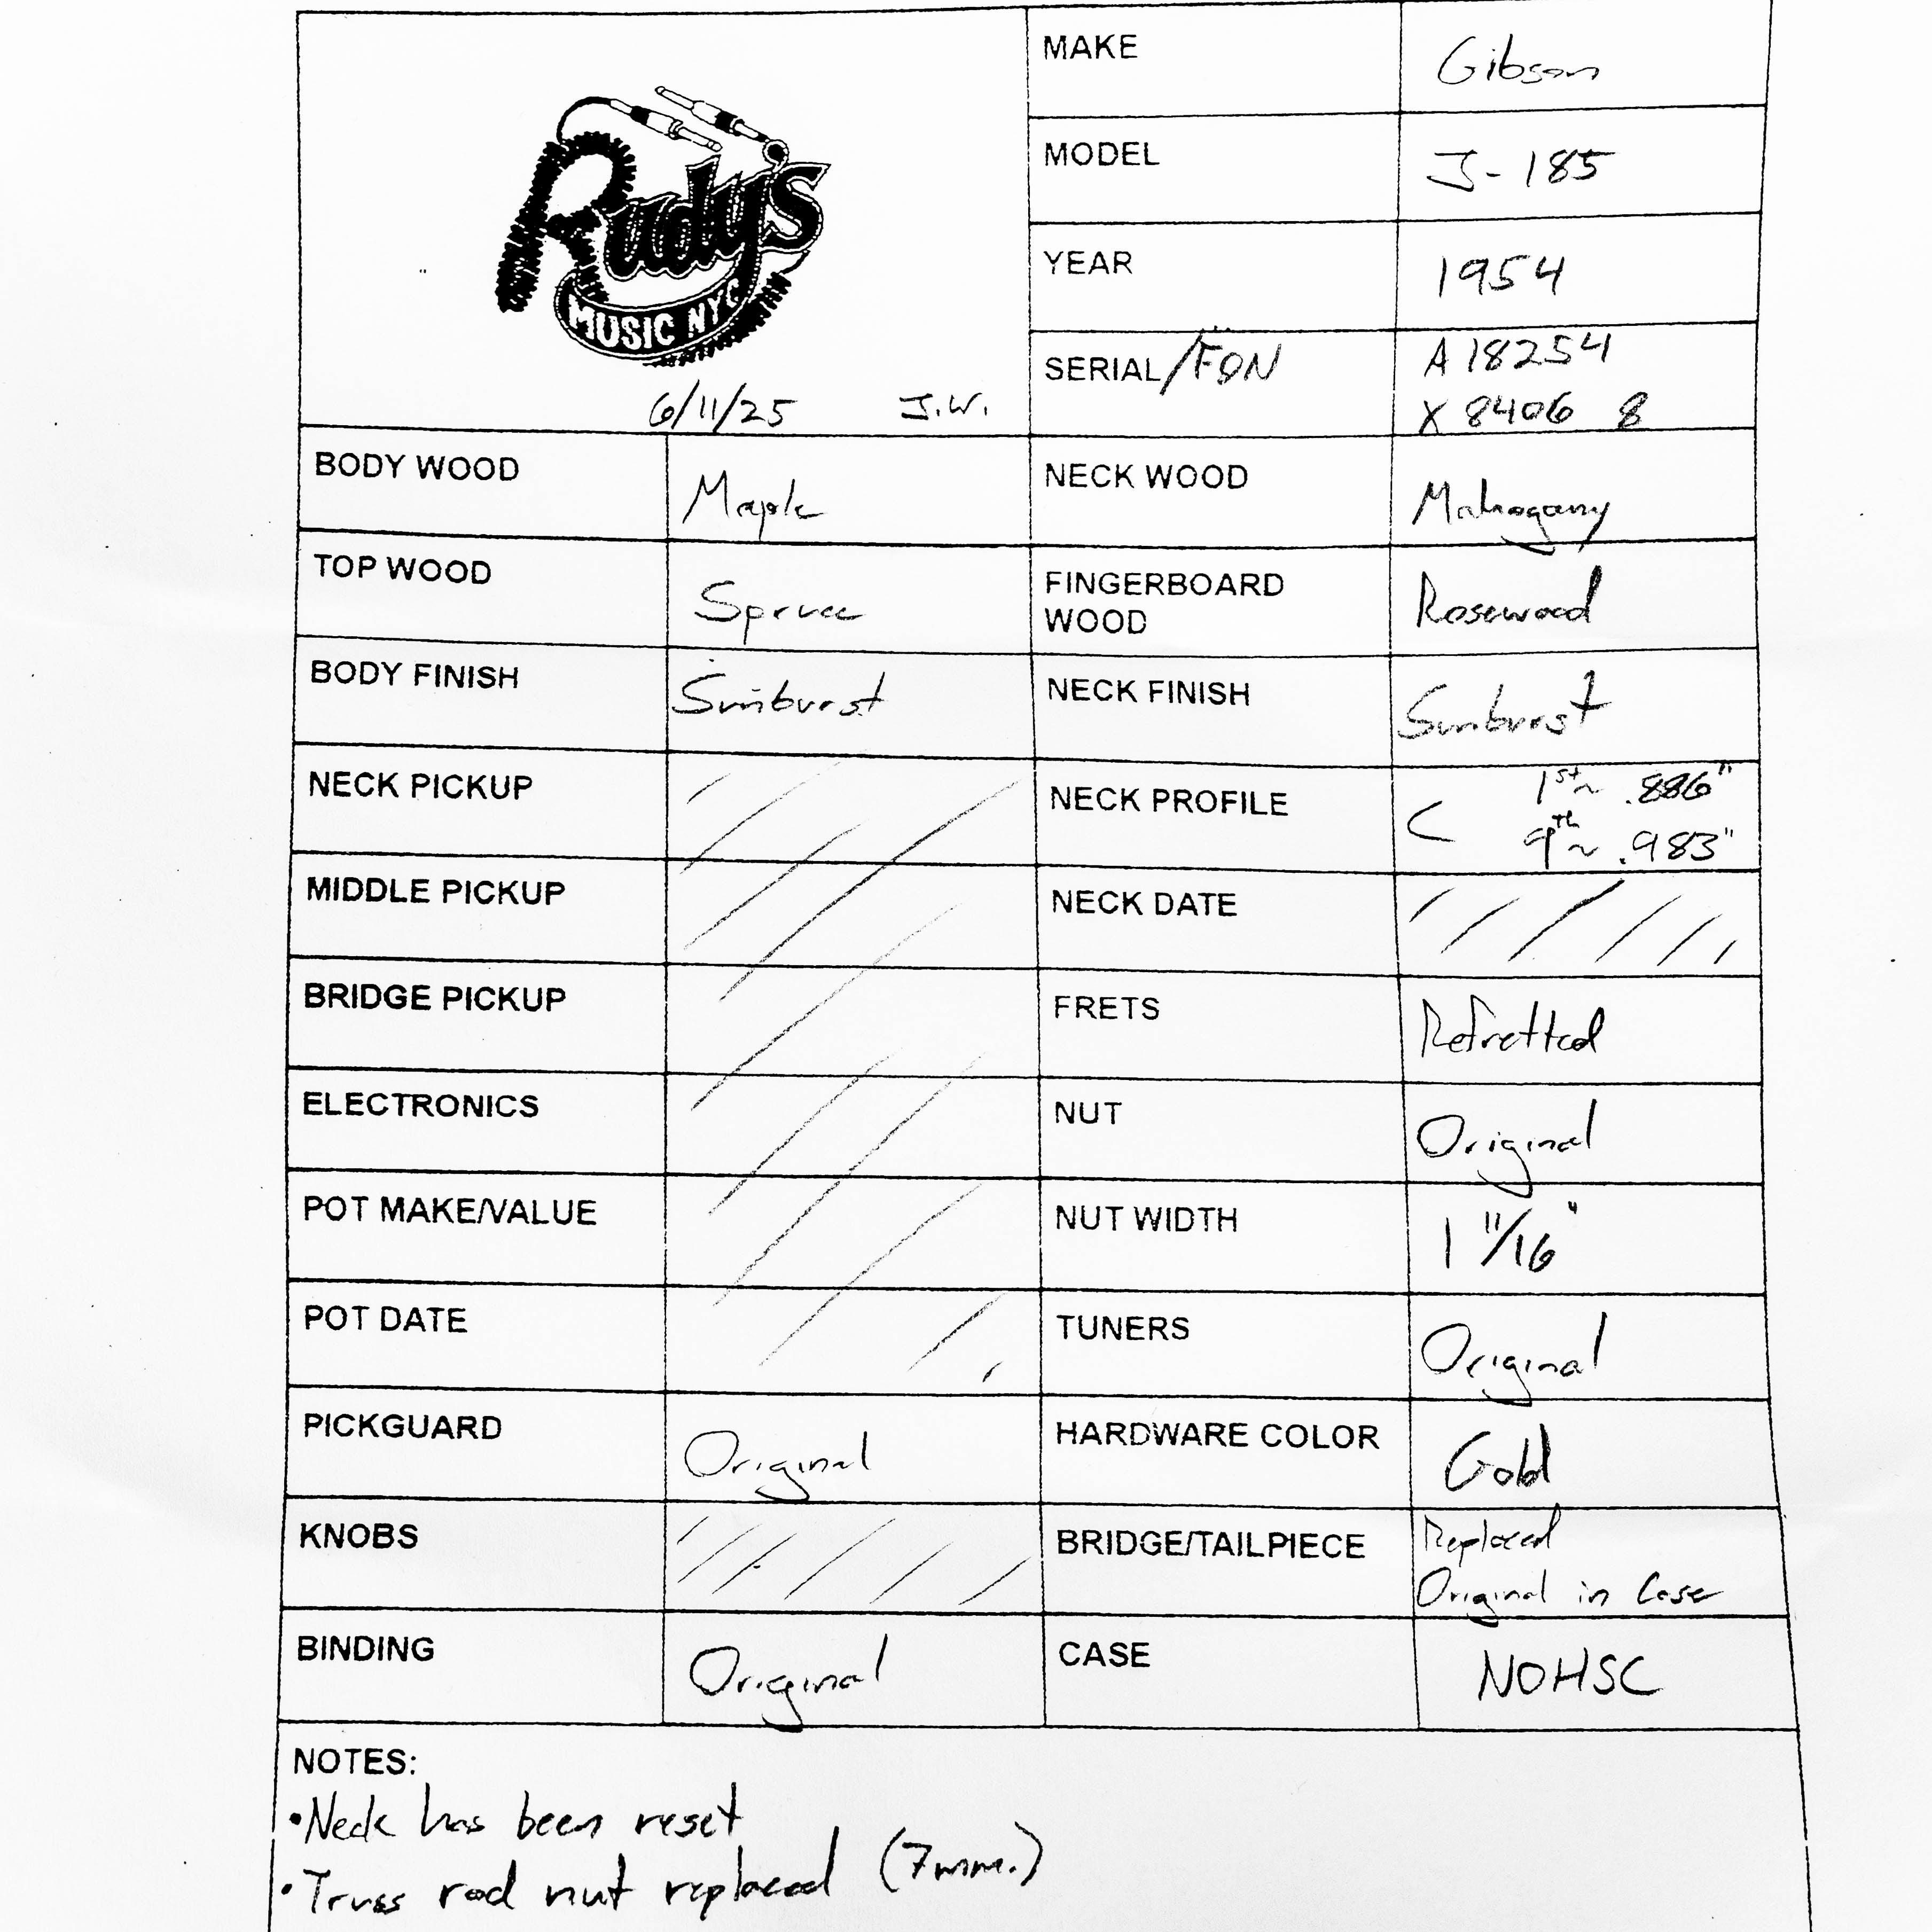 Rudy's
MUSIC NYC
6/11/25 J.W.
MAKE Gibson
MODEL J-185
YEAR 1954
SERIAL/FON A 18254
X 8406 8
BODY WOOD Maple NECK WOOD Mahogany
TOP WOOD Spruce FINGERBOARD
WOOD Rosewood
BODY FINISH Sunburst NECK FINISH Sunburst
NECK PICKUP NECK PROFILE C 1st ~ .886"
9th ~ .983"
MIDDLE PICKUP NECK DATE
BRIDGE PICKUP FRETS Refretted
ELECTRONICS NUT Original
POT MAKE/VALUE NUT WIDTH 1 11/16"
POT DATE TUNERS Original
PICKGUARD Original HARDWARE COLOR Gold
KNOBS BRIDGE/TAILPIECE Replaced
Original in Case
BINDING Original CASE NOHSC
NOTES:
•Neck has been reset
•Truss rod nut replaced (7mm.)